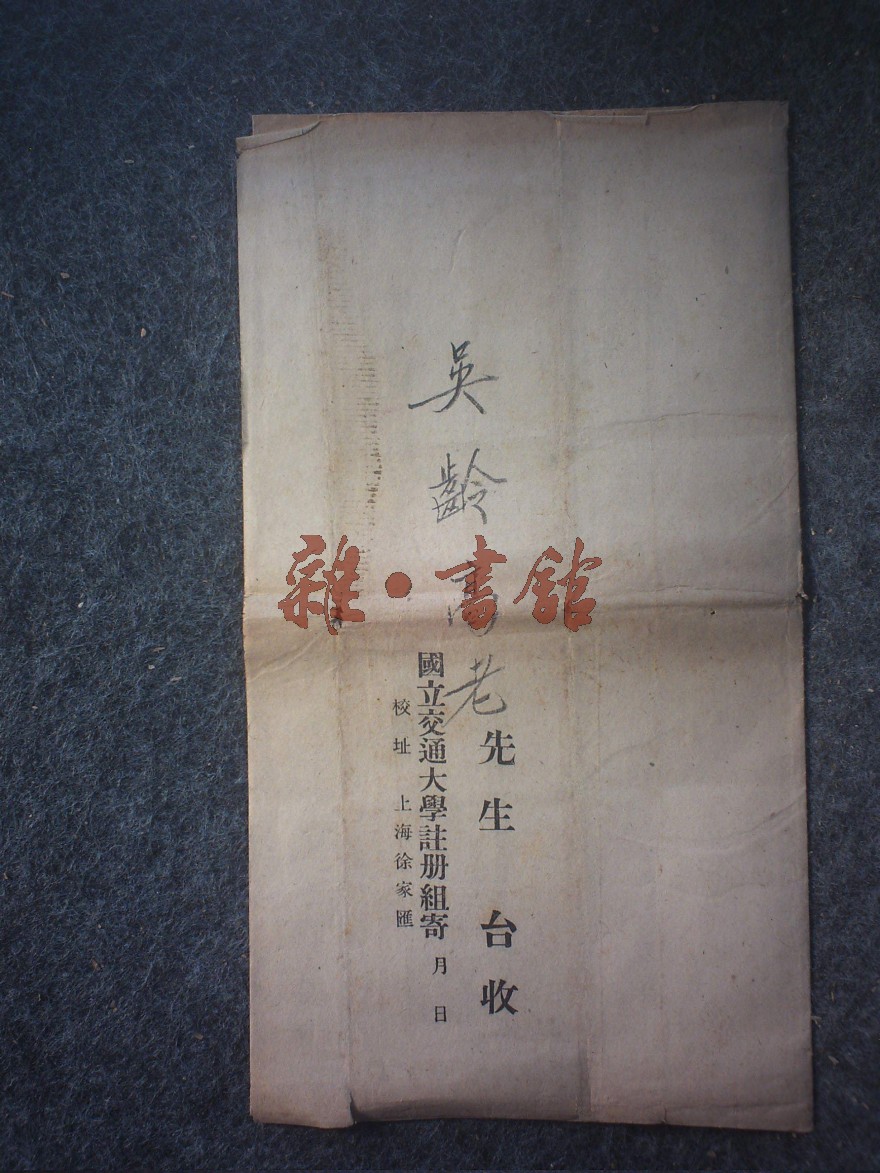 吳齡老
先生 台收
國立交通大學註册組寄 月 日
校址 上海徐家匯
雜·書館